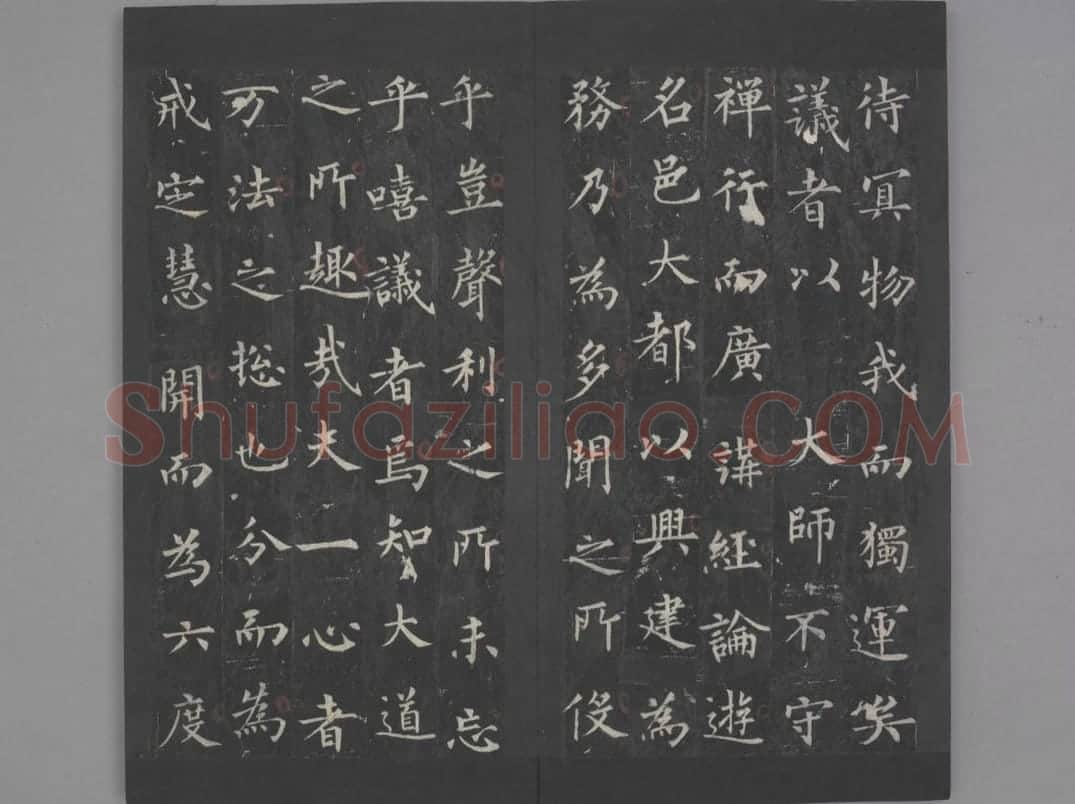 待冥物我而獨運矣
議者以大師不守
禪行而廣講經論遊
名邑大都以興建為
務乃為多聞之所役
乎豈聲利之所未忘
乎嘻議者焉知大道
之所趣哉夫一心者
万法之捴也分而為
戒定慧開而為六度
Shufaziliao.COM